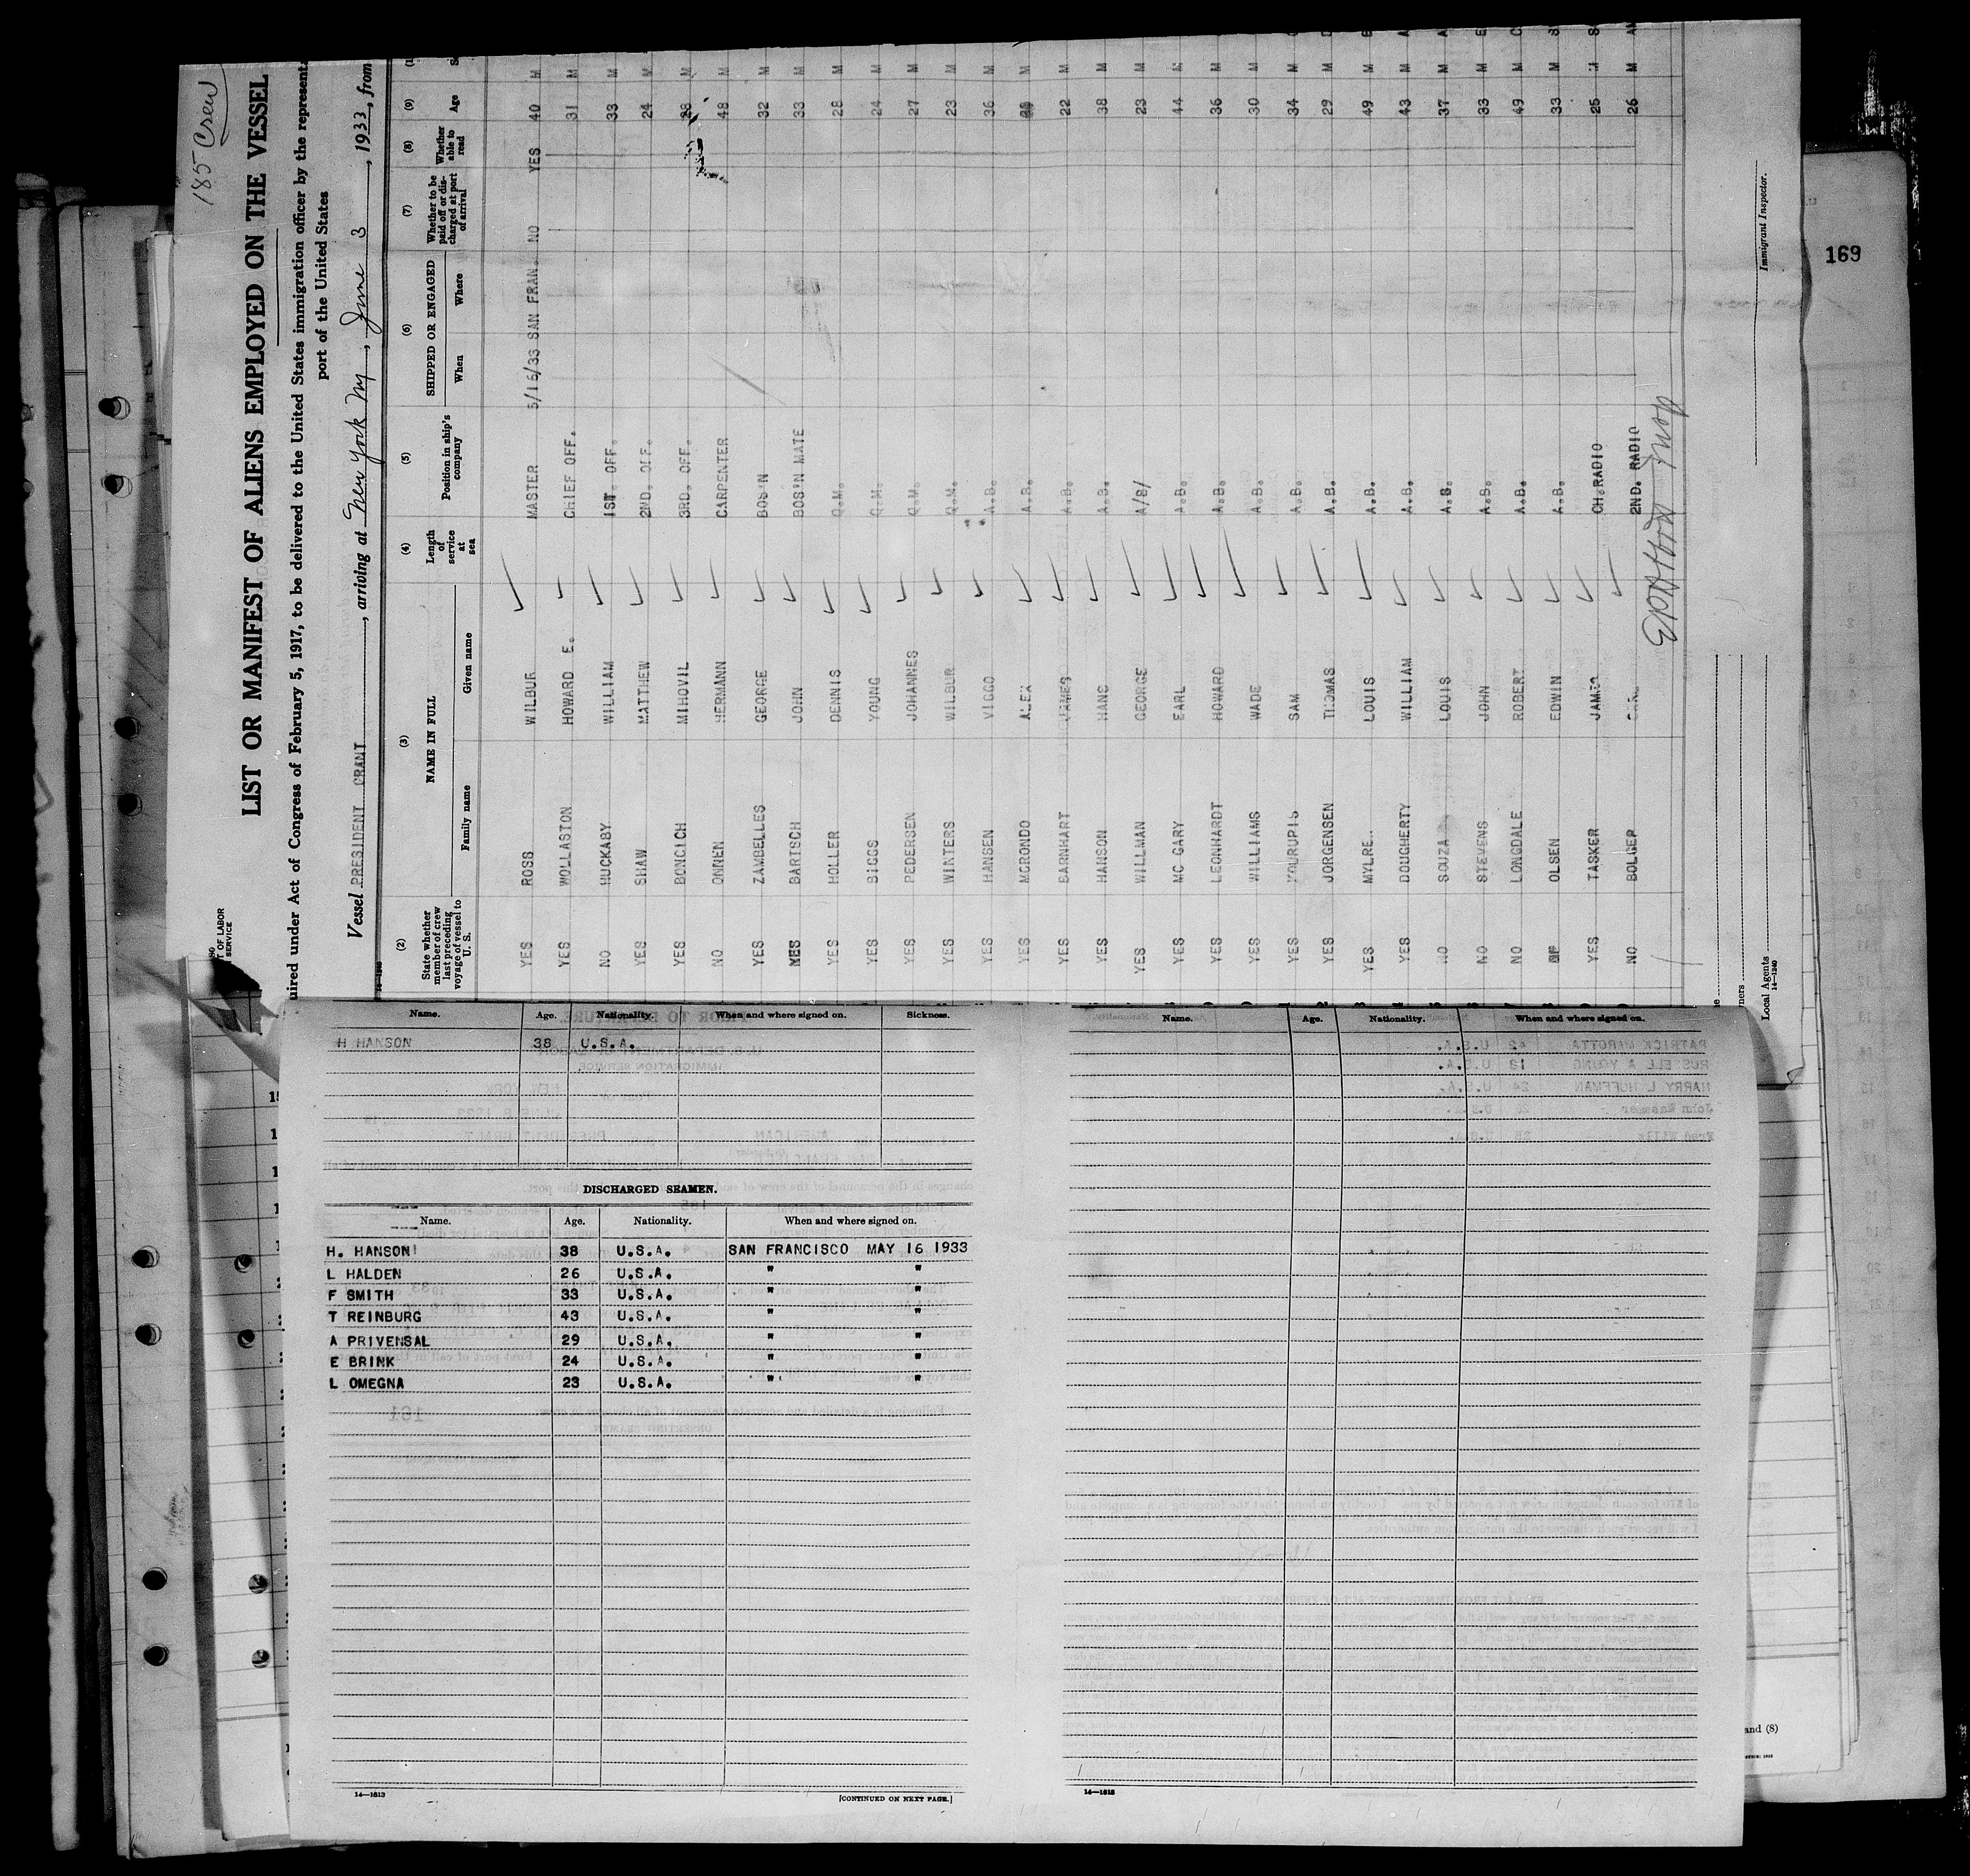 185 Crew
LIST OR MANIFEST OF ALIENS EMPLOYED ON THE VESSEL
uired under Act of Congress of February 5, 1917, to be delivered to the United States immigration officer by the representa
port of the United States
OF LABOR
SERVICE
Vessel PRESIDENT GRANT, arriving at New York Ny, June 3, 1933, from
(2) (3) (4) (5) (6) (7) (8) (9)
State whether member of crew last preceding voyage of vessel to U. S. NAME IN FULL Family name Given name Length of service at sea Position in ship's company SHIPPED OR ENGAGED When Where Whether to be paid off or discharged at port of arrival Whether able to read Age
YES ROSS WILBUR MASTER 5/16/33 SAN FRAN. NO YES 40 M
YES WOLLASTON HOWARD E. CHIEF OFF. 31 M
NO HUCKABY WILLIAM 1ST. OFF. 33 M
YES SHAW MATTHEW 2ND. OFF. 24 M
YES BONCICH MIHOVIL 3RD. OFF. 28 M
NO ONNEN HERMANN CARPENTER 48 M
YES ZAMBELLES GEORGE BOS'N 32 M
YES BARISICH JOHN BOS'N MATE 33 M
YES HOLLER DENNIS Q.M. 28 M
YES BIGGS YOUNG Q.M. 24 M
YES PEDERSEN JOHANNES Q.M. 27 M
YES WINTERS WILBUR Q.M. 23 M
YES HANSEN VIGGO A.B. 36 M
YES MORONDO ALEX A.B. M
YES BARNHART JAMES A.B. 22 M
YES HANSON HANS A.B. 38 M
YES WILLMAN GEORGE A/B/ 23 M
YES MC GARY EARL A.B. 44 M
YES LEONHARDT HOWARD A.B. 36 M
YES WILLIAMS WADE A.B. 30 M
YES KOURUPIS SAM A.B. 34 M
YES JORGENSEN THOMAS A.B. 29 M
YES MYLRE LOUIS A.B. 49 M
YES DOUGHERTY WILLIAM A.B. 43 M
NO SOUZA LOUIS A.B. 37 M
NO STEVENS JOHN A.B. 33 M
NO LONGDALE ROBERT A.B. 49 M
OLSEN EDWIN A.B. 33 M
YES TASKER JAMES CH.RADIO 25 M
NO BOLGER 2ND. RADIO 26 M
Immigrant Inspector.
Local Agents
14—1240
169
Name. Age. Nationality. When and where signed on. Sickness.
H HANSON 38 U.S.A.
DISCHARGED SEAMEN.
Name. Age. Nationality. When and where signed on.
H. HANSON 38 U.S.A. SAN FRANCISCO MAY 16 1933
L HALDEN 26 U.S.A. " "
F SMITH 33 U.S.A. " "
T REINBURG 43 U.S.A. " "
A PRIVENSAL 29 U.S.A. " "
E BRINK 24 U.S.A. " "
L OMEGNA 23 U.S.A. " "
14—1613
[CONTINUED ON NEXT PAGE.]
Name. Age. Nationality. When and where signed on.
14—1613
and (8)